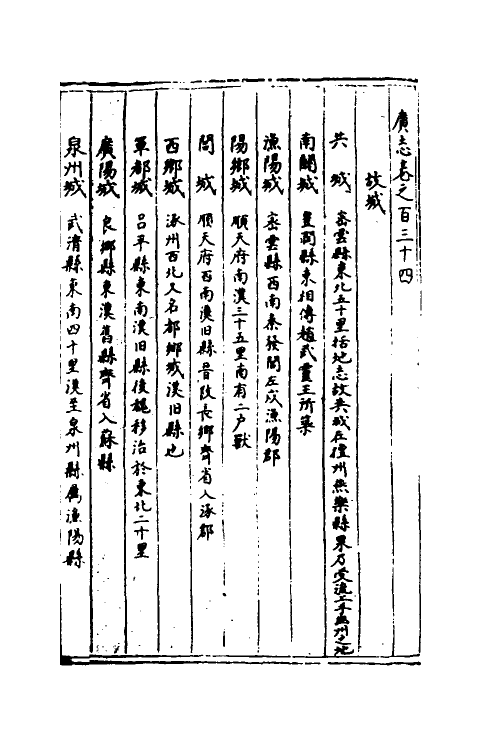 廣志卷之百三十四
故城
共城 密雲縣東北五十里括地志故共城在檀州燕樂縣界乃受流工于幽州之地
南關城 縣東相傳趙武靈王所築
漁陽城 密雲縣西南秦發閭左戍漁陽郡
陽鄉城 順天府南漢三十五里南有二戶獸
間城 順天府西南漢旧縣晉改長鄉齊省入涿郡
西鄉城 涿州西北又名都鄉城漢旧縣也
軍都城 昌平縣東南漢旧縣後魏移治於東北二十里
廣陽城 良鄉縣東漢舊縣齊省入薊縣
泉州城 武清縣東南四十里漢至泉州縣屬漁陽縣